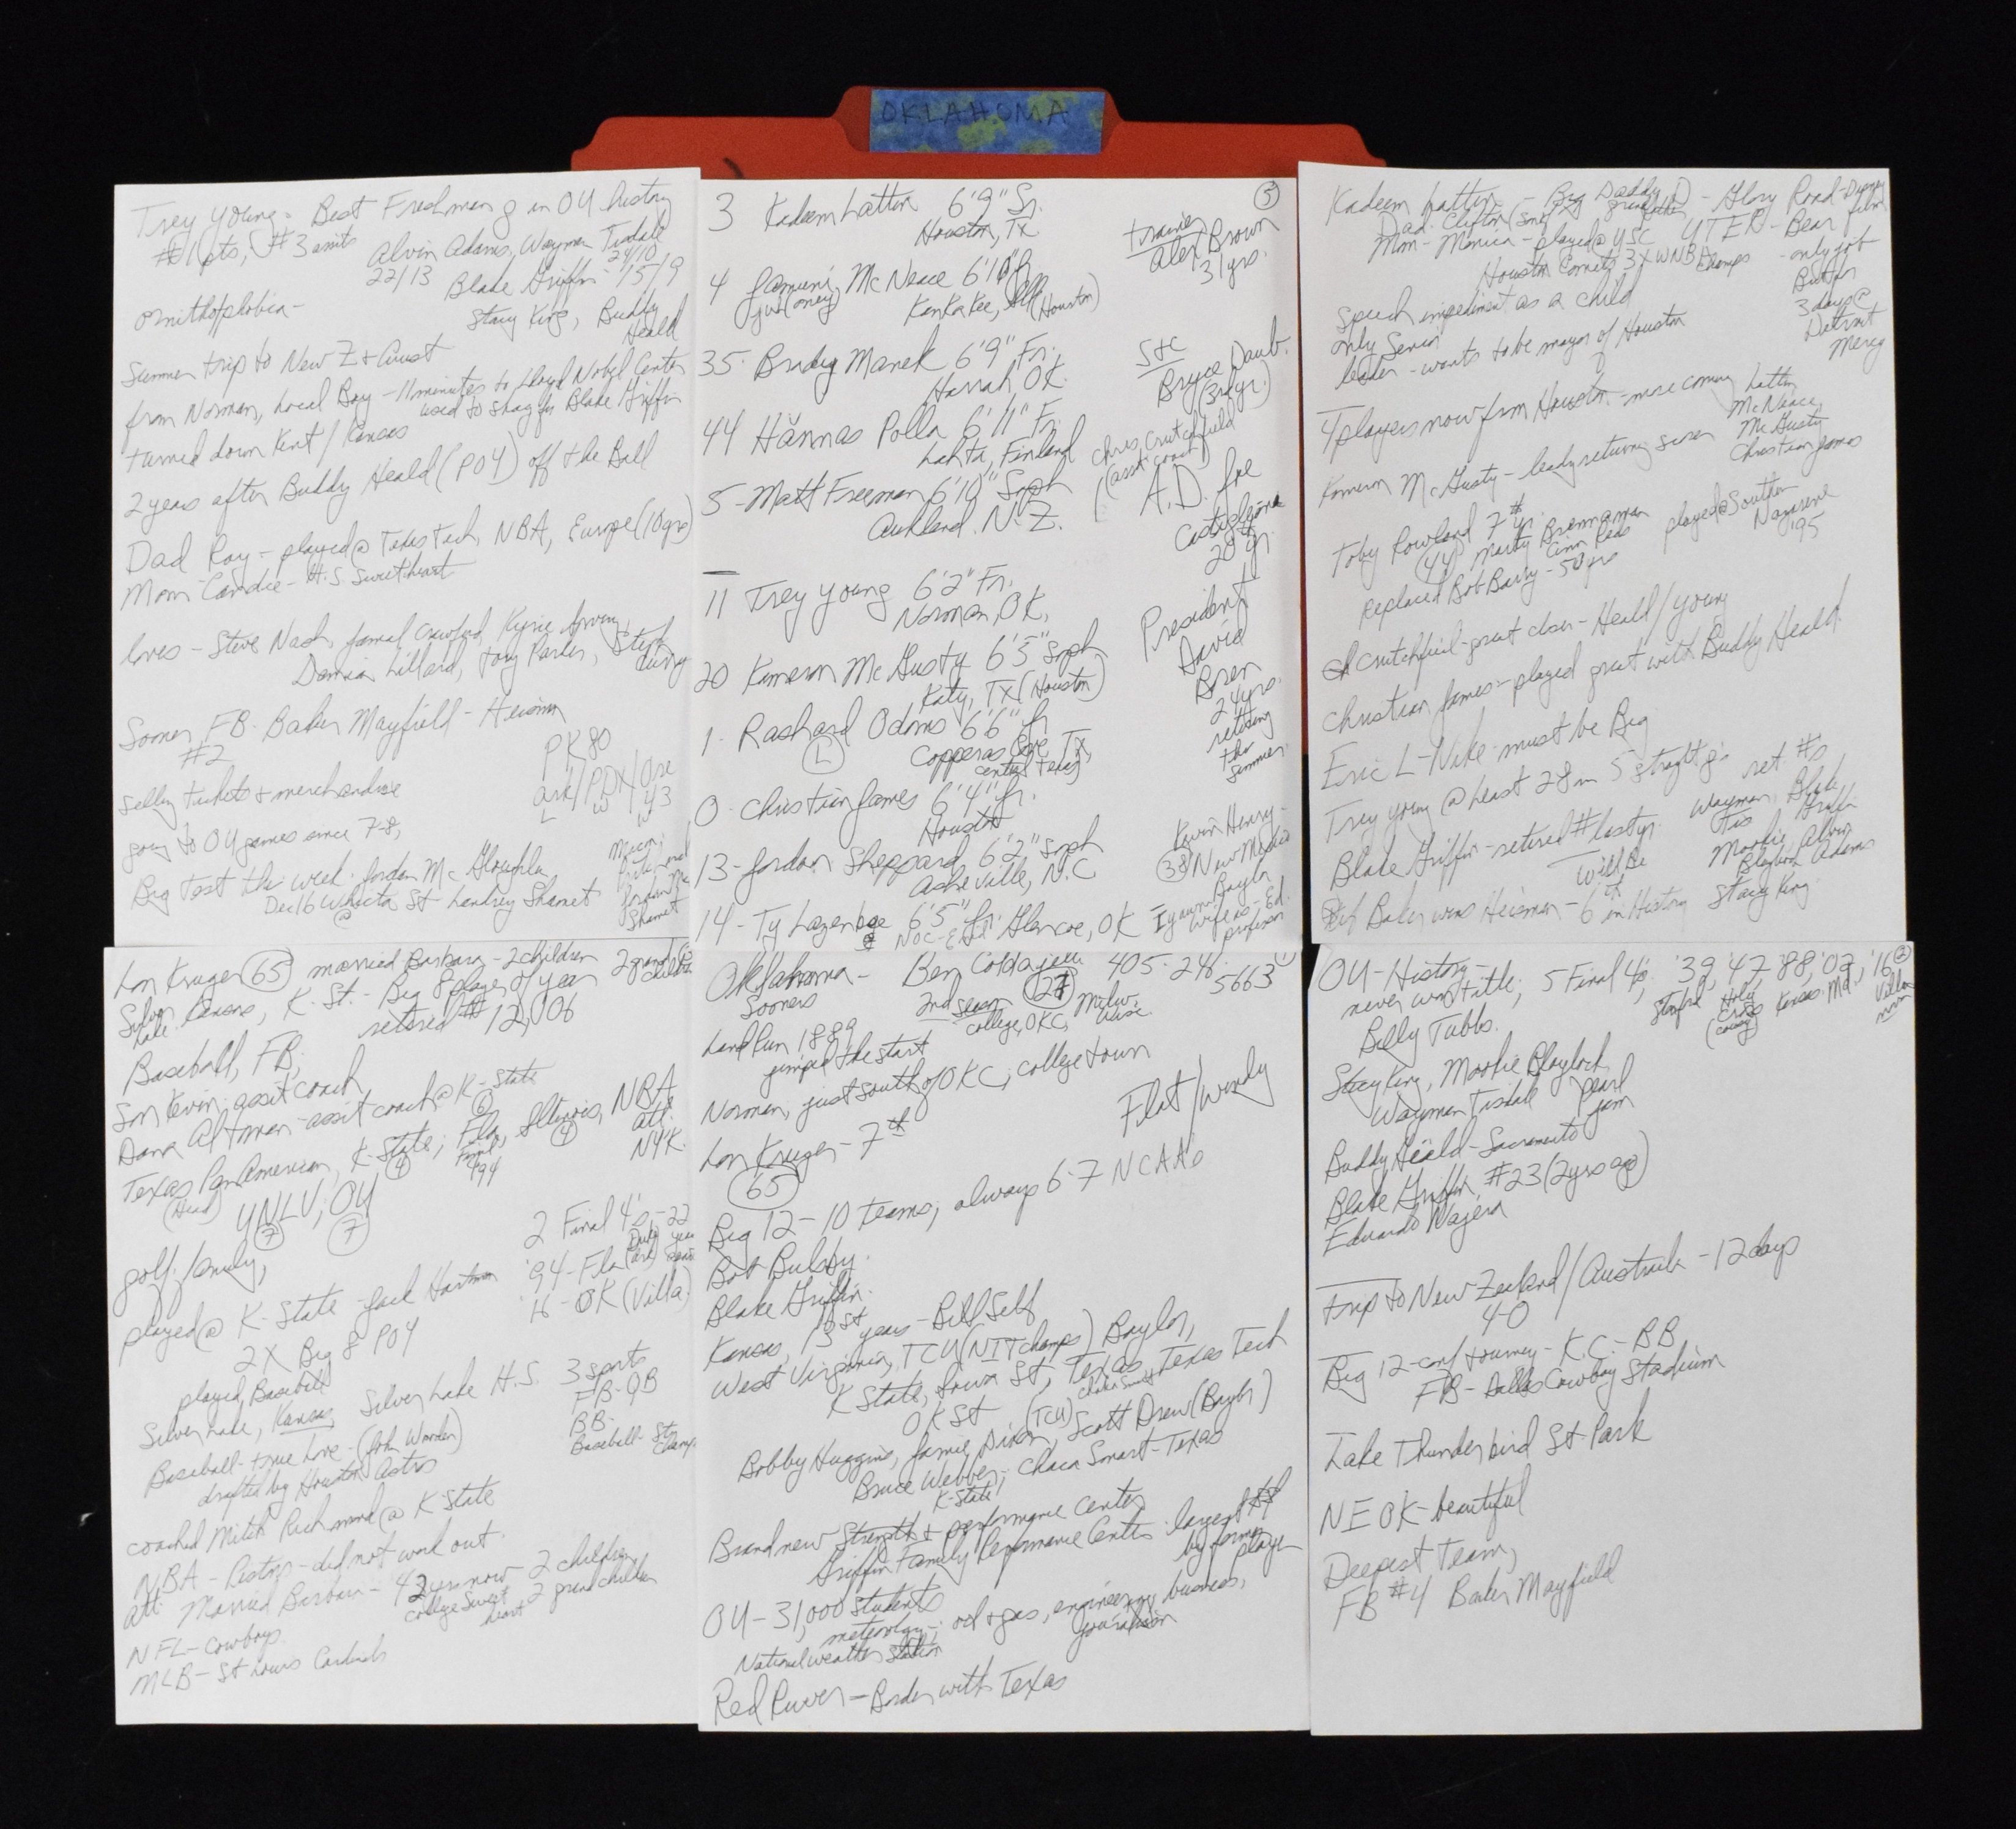 OKLAHOMA
Trey Young - Best Freshman g in OU history
#1 pts, #3 assists Alvin Adams, Wayman Tisdale
22/13 24/10
Blake Griffin - 15/9
ornithophobia - Stacy King, Buddy
Heald
Summer trip to New Z + Aust
from Norman, Local Boy - 11 minutes to Lloyd Nobel Center
used to shag for Blake Griffin
turned down Kent / Kansas
2 years after Buddy Heald (POY) off the Ball
Dad Ray - played @ Texas Tech, NBA, Europe (10 yrs)
Mom Candice - H.S. Sweetheart
loves - Steve Nash, Jamal Crawford, Kyrie Irving,
Damian Lillard, Tony Parker, Steph
Curry
Sooner FB - Baker Mayfield - Heisman
#2
PK80
selling tickets + merchandise
Ark/PDX/Ore
L W W 43
going to OU games since 7-8,
Big Test this week - Jordan McGloughlin
Dec 16 Wichita St Landrey Shamet
@
3 Kadeem Lattin 6'9" Sr.
Houston, Tx
4 Jamuni McNeace 6'10" Jr
Kankakee, Ill (Houston)
35 - Brady Manek 6'9" Fr.
Harrah, OK.
44 Hännas Polla 6'11" Fr.
Lahti, Finland
5 - Matt Freeman 6'10" Soph
Auckland, N.Z.
11 Trey Young 6'2" Fr.
Norman, OK.
20 Kameron McGusty 6'5" Soph
Katy, TX (Houston)
1 - Rashard Odoms 6'6" Jr
(L) Copperas Cove, Tx,
central Texas
0 - Christian James 6'4" Jr.
Houston
13 - Jordan Sheppard 6'2" Soph
Asheville, N.C
14 - Ty Lazenbee 6'5" Jr. Glencoe, OK
3
trainer
Alex Brown
31 yrs.
S+C
Bryce Daub.
(3rd yr.)
Chris Crutchfield
(asst. coach)
A.D. Joe
Castiglione
20th yr.
President
David
Boren
24 yrs.
retiring
this
summer.
Kevin Henry -
38 New Mexico
Baylor
Kadeem Lattin - Big Daddy D - Glory Road - Disney
Dad - Clifton (son) grandfather film
Mom - Monica - played @ USC UTEP - Bear
Houston Comets 3X WNBA Champs - only job
But for
3 days @
Detroit
Mercy
Speech impediment as a child
only Senior
leader - wants to be mayor of Houston
4 players now from Houston - more coming Lattin
McNeace
McGusty
Christian James
Kameron McGusty - leading returning scorer
Toby Rowland 7th yr. played @ Southern
Nazarene
'95
(44) Marty Brennaman
Cinn Reds
replaced Bob Barry - 50 yrs
Crutchfield - great closer - Heald / Young
Christian James - played great with Buddy Heald.
Eric L - Nike - must be Big
Trey Young @ least 28 in 5 straight g's
ret. #s
Blake Griffin - retired # last yr. Wayman Tis Blake Griffin
Mookie Blaylock Alvin Adams
Stacy King
Will Be
If Baker wins Heisman - 6th in History
Lon Kruger (65) married Barbara - 2 children 2 grand children
Silver Lake Kansas, K. St. - Big 8 player of year
retired # 12, '06
Baseball, FB,
Son Kevin - assit coach
Dana Altman - assit coach @ K-State
Texas Pan American, K-State; Fla, Illinois, NBA
(Head) (4) (6) Final 4 '94 (4) Atl.
N.Y.K.
UNLV, OU
(7) (7)
golf, family,
2 Final 4's - 22
'94 - Fla (Duke)
16 - OK (Villa.)
played @ K-State - Jack Hartman
2X Big 8 POY
played Baseball
Silver Lake, Kansas Silver Lake H.S. 3 sports
FB - QB
BB -
Baseball - St. Champs
Baseball - true love - (John Wooden)
drafted by Houston Astros
coached Mitch Richmond @ K-State
NBA - Pistons - did not work out.
Atl. Married Barbara - 42 yrs now - 2 children
college sweetheart 2 grandchildren
NFL - Cowboys
MLB - St Louis Cardinals
Oklahoma - Ben Coldagelli 405-248-5663
Sooners 2nd Season (27) Milw.
college, OKC, Wisc.
Land Run 1889
jumped the start
Norman, just south of OKC, college town
Flat / windy
Lon Kruger - 7th
(65)
Big 12 - 10 teams, always 6-7 NCAA's
Bob Bulsby.
Blake Griffin.
Kansas, 13 St years - Bill Self
West Virginia, TCU (NIT champs) Baylor,
K State, Iowa St, Texas, Texas Tech
Chaka Smart
OK St
Bobby Huggins, Jamie Dixon (TCU), Scott Drew (Baylor)
Bruce Webber, Chaca Smart - Texas
K-State
Brand new Strength + performance Center
Griffin Family Performance Center - largest $$
by former
player
OU - 31,000 students
meteorology, oil + gas, engineering, business,
journalism
National weather station
Red River - Border with Texas
2
OU - History -
never won title; 5 Final 4's, '39, '47, '88, '02, '16
Holy Cross (Cousy) Kansas Md. Villanova
Billy Tubbs.
Stacy King, Mookie Blaylock
Wayman Tisdale Pearl
Jam
Buddy Heild - Sacramento
Blake Griffin #23 (2 yrs ago)
Eduardo Najera
trip to New Zealand / Australia - 12 days
4-0
Big 12 - conf tourney - K.C. - BB
FB - Dallas Cowboy Stadium
Lake Thunderbird St Park
NE OK - beautiful
Deepest Team,
FB #4 Baker Mayfield